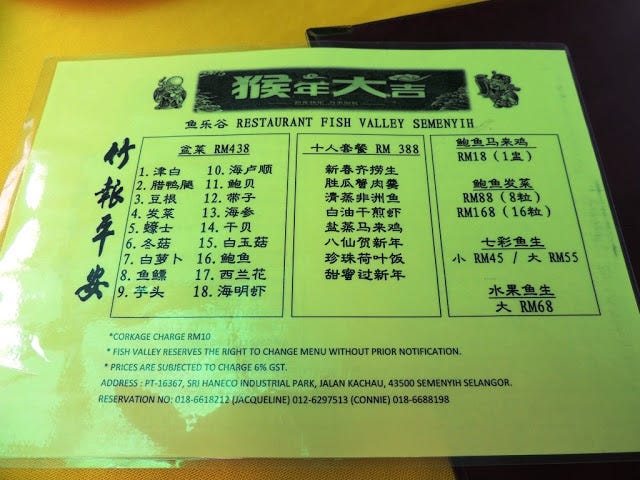 猴年大吉
鱼乐谷 RESTAURANT FISH VALLEY SEMENYIH
竹报平安
盆菜 RM438
1. 津白
2. 腊鸭腿
3. 豆根
4. 发菜
5. 蠔士
6. 冬菇
7. 白萝卜
8. 鱼鳔
9. 芋头
10. 海卢顺
11. 鲍贝
12. 带子
13. 海参
14. 干贝
15. 白玉菇
16. 鲍鱼
17. 西兰花
18. 海明虾
十人套餐 RM 388
新春齐捞生
胜瓜蟹肉羹
清蒸非洲鱼
白油干煎虾
盐蒸马来鸡
八仙贺新年
珍珠荷叶饭
甜甜蜜蜜过新年
鲍鱼马来鸡
RM18 (1盅)
鲍鱼发菜
RM88 (8粒)
RM168 (16粒)
七彩鱼生
小 RM45 / 大 RM55
水果鱼生
大 RM68
*CORKAGE CHARGE RM10
* FISH VALLEY RESERVES THE RIGHT TO CHANGE MENU WITHOUT PRIOR NOTIFICATION.
* PRICES ARE SUBJECTED TO CHARGE 6% GST.
ADDRESS : PT-16367, SRI HANECO INDUSTRIAL PARK, JALAN KACHAU, 43500 SEMENYIH SELANGOR.
RESERVATION NO: 018-6618212 (JACQUELINE) 012-6297513 (CONNIE) 018-6688198